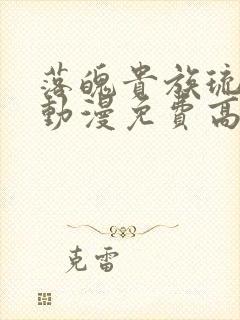 落魄貴族琉
動漫免費高
克雷